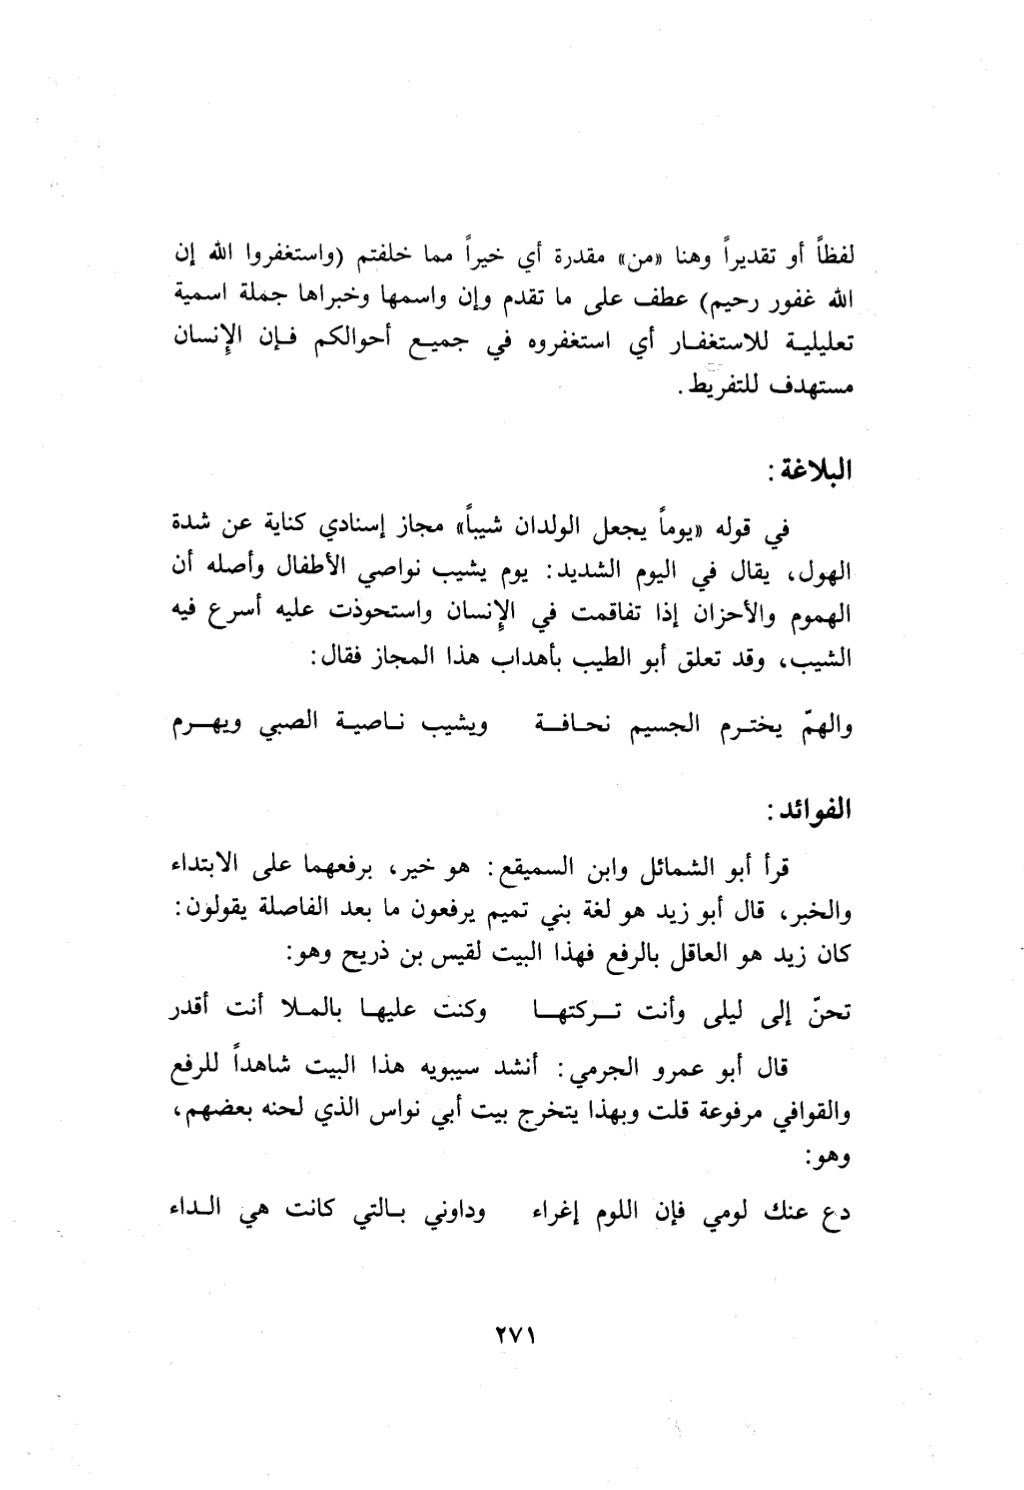 لفظاً أو تقديراً وهنا «من» مقدرة أي خيراً مما خلفتم (واستغفروا الله إن
الله غفور رحيم) عطف على ما تقدم وإن واسمها وخبراها جملة اسمية
تعليليـة للاستغفـار أي استغفروه في جميـع أحوالكم فـإن الإنسان
مستهدف للتفريط .
البلاغة :
في قوله «يوماً يجعل الولدان شيباً» مجاز إسنادي كناية عن شدة
الهول، يقال في اليوم الشديد : يوم يشيب نواصي الأطفال وأصله أن
الهموم والأحزان إذا تفاقمت في الإنسان واستحوذت عليه أسرع فيه
الشيب، وقد تعلق أبو الطيب بأهداب هذا المجاز فقال :
والهمّ يختـرم الجسيم نحـافـة ويشيب نـاصيـة الصبي ويهـرم
الفوائد :
قرأ أبو الشمائل وابن السميقع : هو خير، برفعهما على الابتداء
والخبر، قال أبو زيد هو لغة بني تميم يرفعون ما بعد الفاصلة يقولون :
كان زيد هو العاقل بالرفع فهذا البيت لقيس بن ذريح وهو :
تحنّ إلى ليلى وأنت تـركتهـا وكنت عليهـا بالمـلا أنت أقدر
قال أبو عمرو الجرمي : أنشد سيبويه هذا البيت شاهداً للرفع
والقوافي مرفوعة قلت وبهذا يتخرج بيت أبي نواس الذي لحنه بعضهم،
وهو :
دع عنك لومي فإن اللوم إغراء وداوني بـالتي كانت هي الـداء
٢٧١